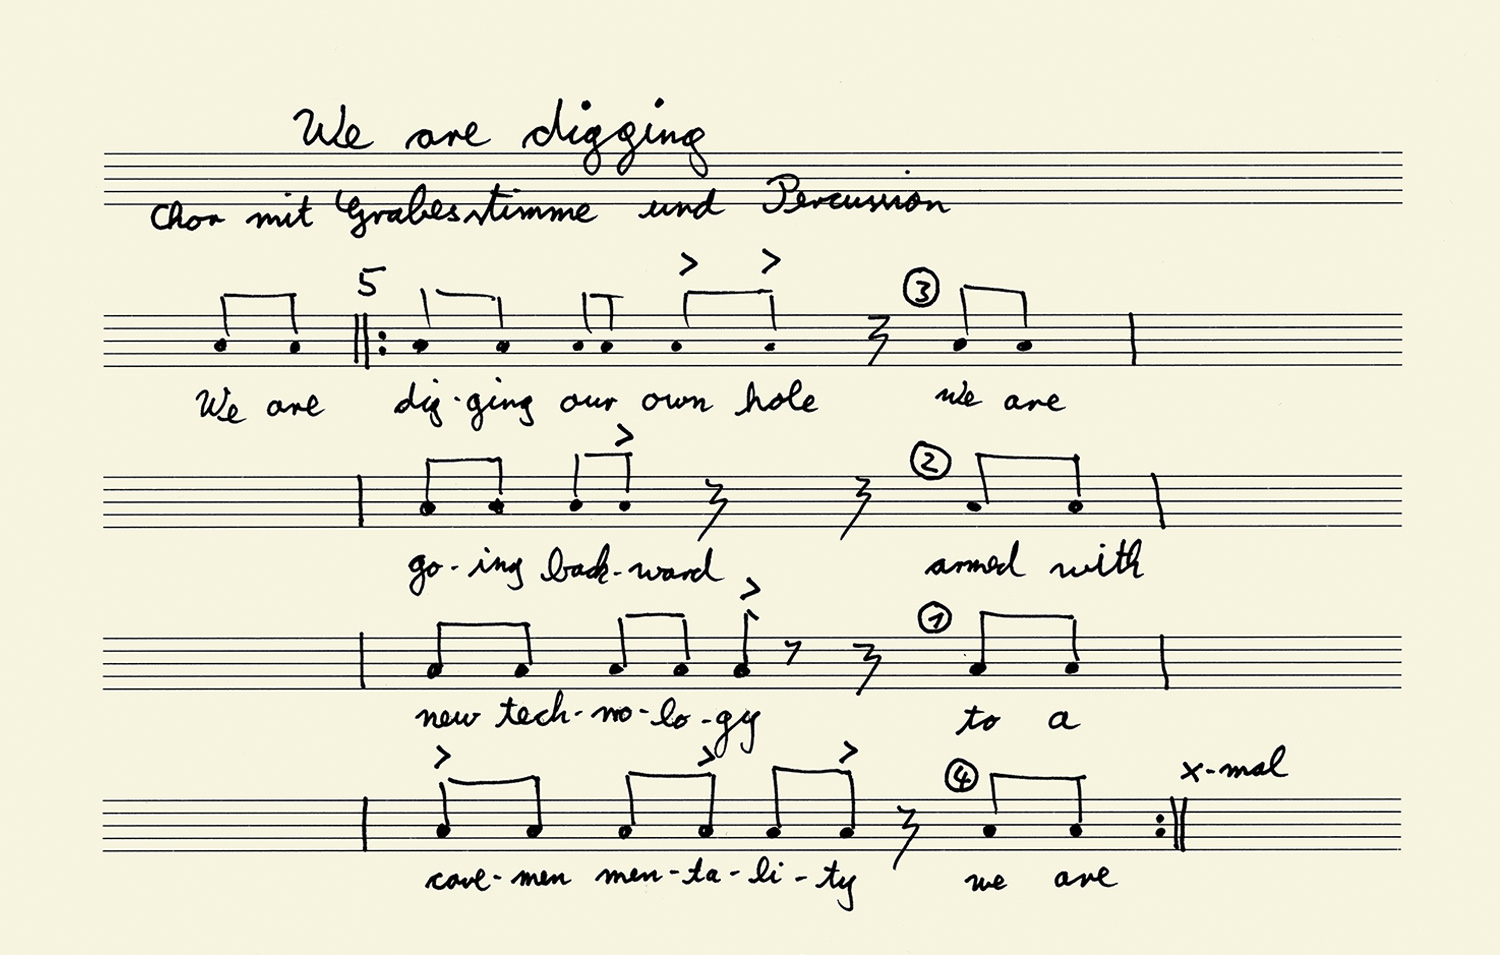 We are digging
Chor mit Grabesstimme und Percussion
5 > > ③
We are dig-ging our own hole we are
> ②
go-ing back-ward armed with
> ①
new tech-no-lo-gy to a
> > > ④ x-mal
cave-men men-ta-li-ty we are